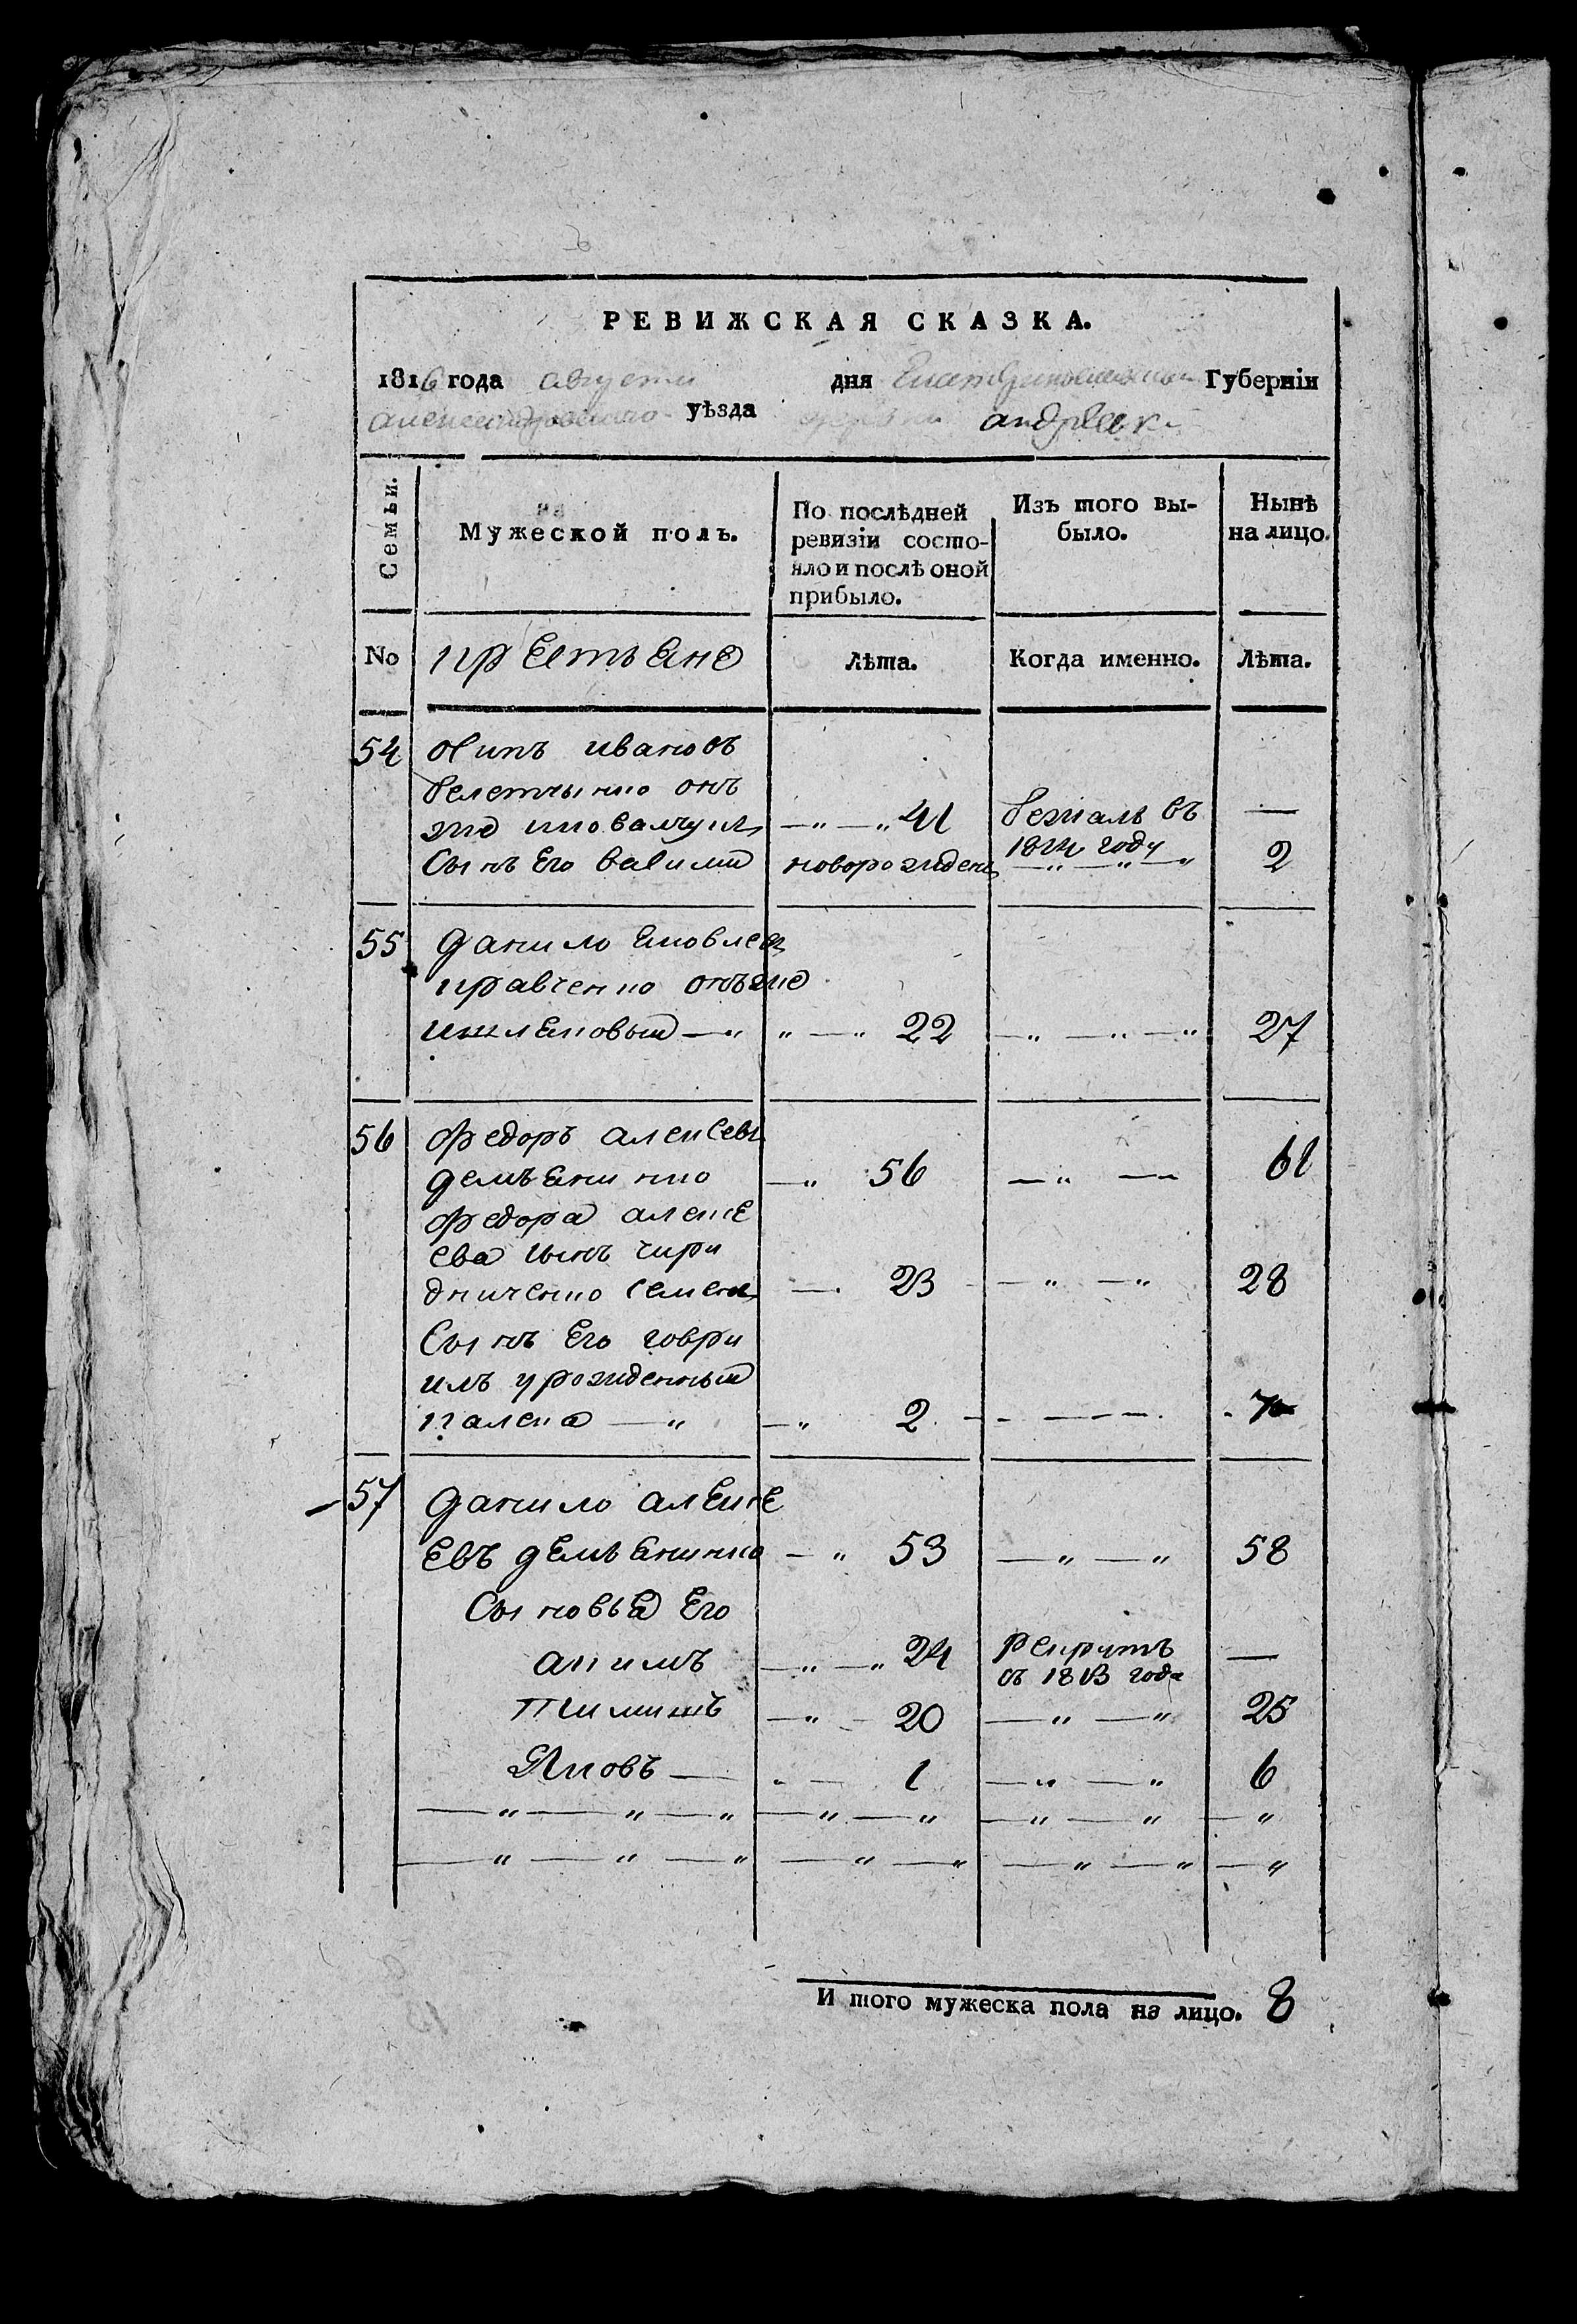 РЕВИЖСКАЯ СКАЗКА.
1816 года августа дня Екатеринославской Губерніи
александровского уѣзда деревни андрѣевки
Семьи.
Мужеской полъ.
По послѣдней ревизіи состояло и послѣ оной прибыло.
Изъ того выбыло.
Нынѣ на лицо.
No крестьяне Лѣта. Когда именно. Лѣта.
54 осипъ ивановъ
онъ
же 41 бежалъ въ —
1814 году
Сынъ Его новорожденъ 2
55 данило яковлевъ
кравченко онъже
22 27
56 федоръ алексевъ
демьяненко 56 61
федора алексе
ева сынъ чири
дниченко семенъ 23 28
Сынъ Его гаври
илъ урожденный
2 7
57 данило алексе
евъ демьяненко 53 58
Сыновья Его
акимъ 24 рекрутъ —
съ 1813 года
20 25
Яковъ 1 6
И того мужеска пола на лицо. 8